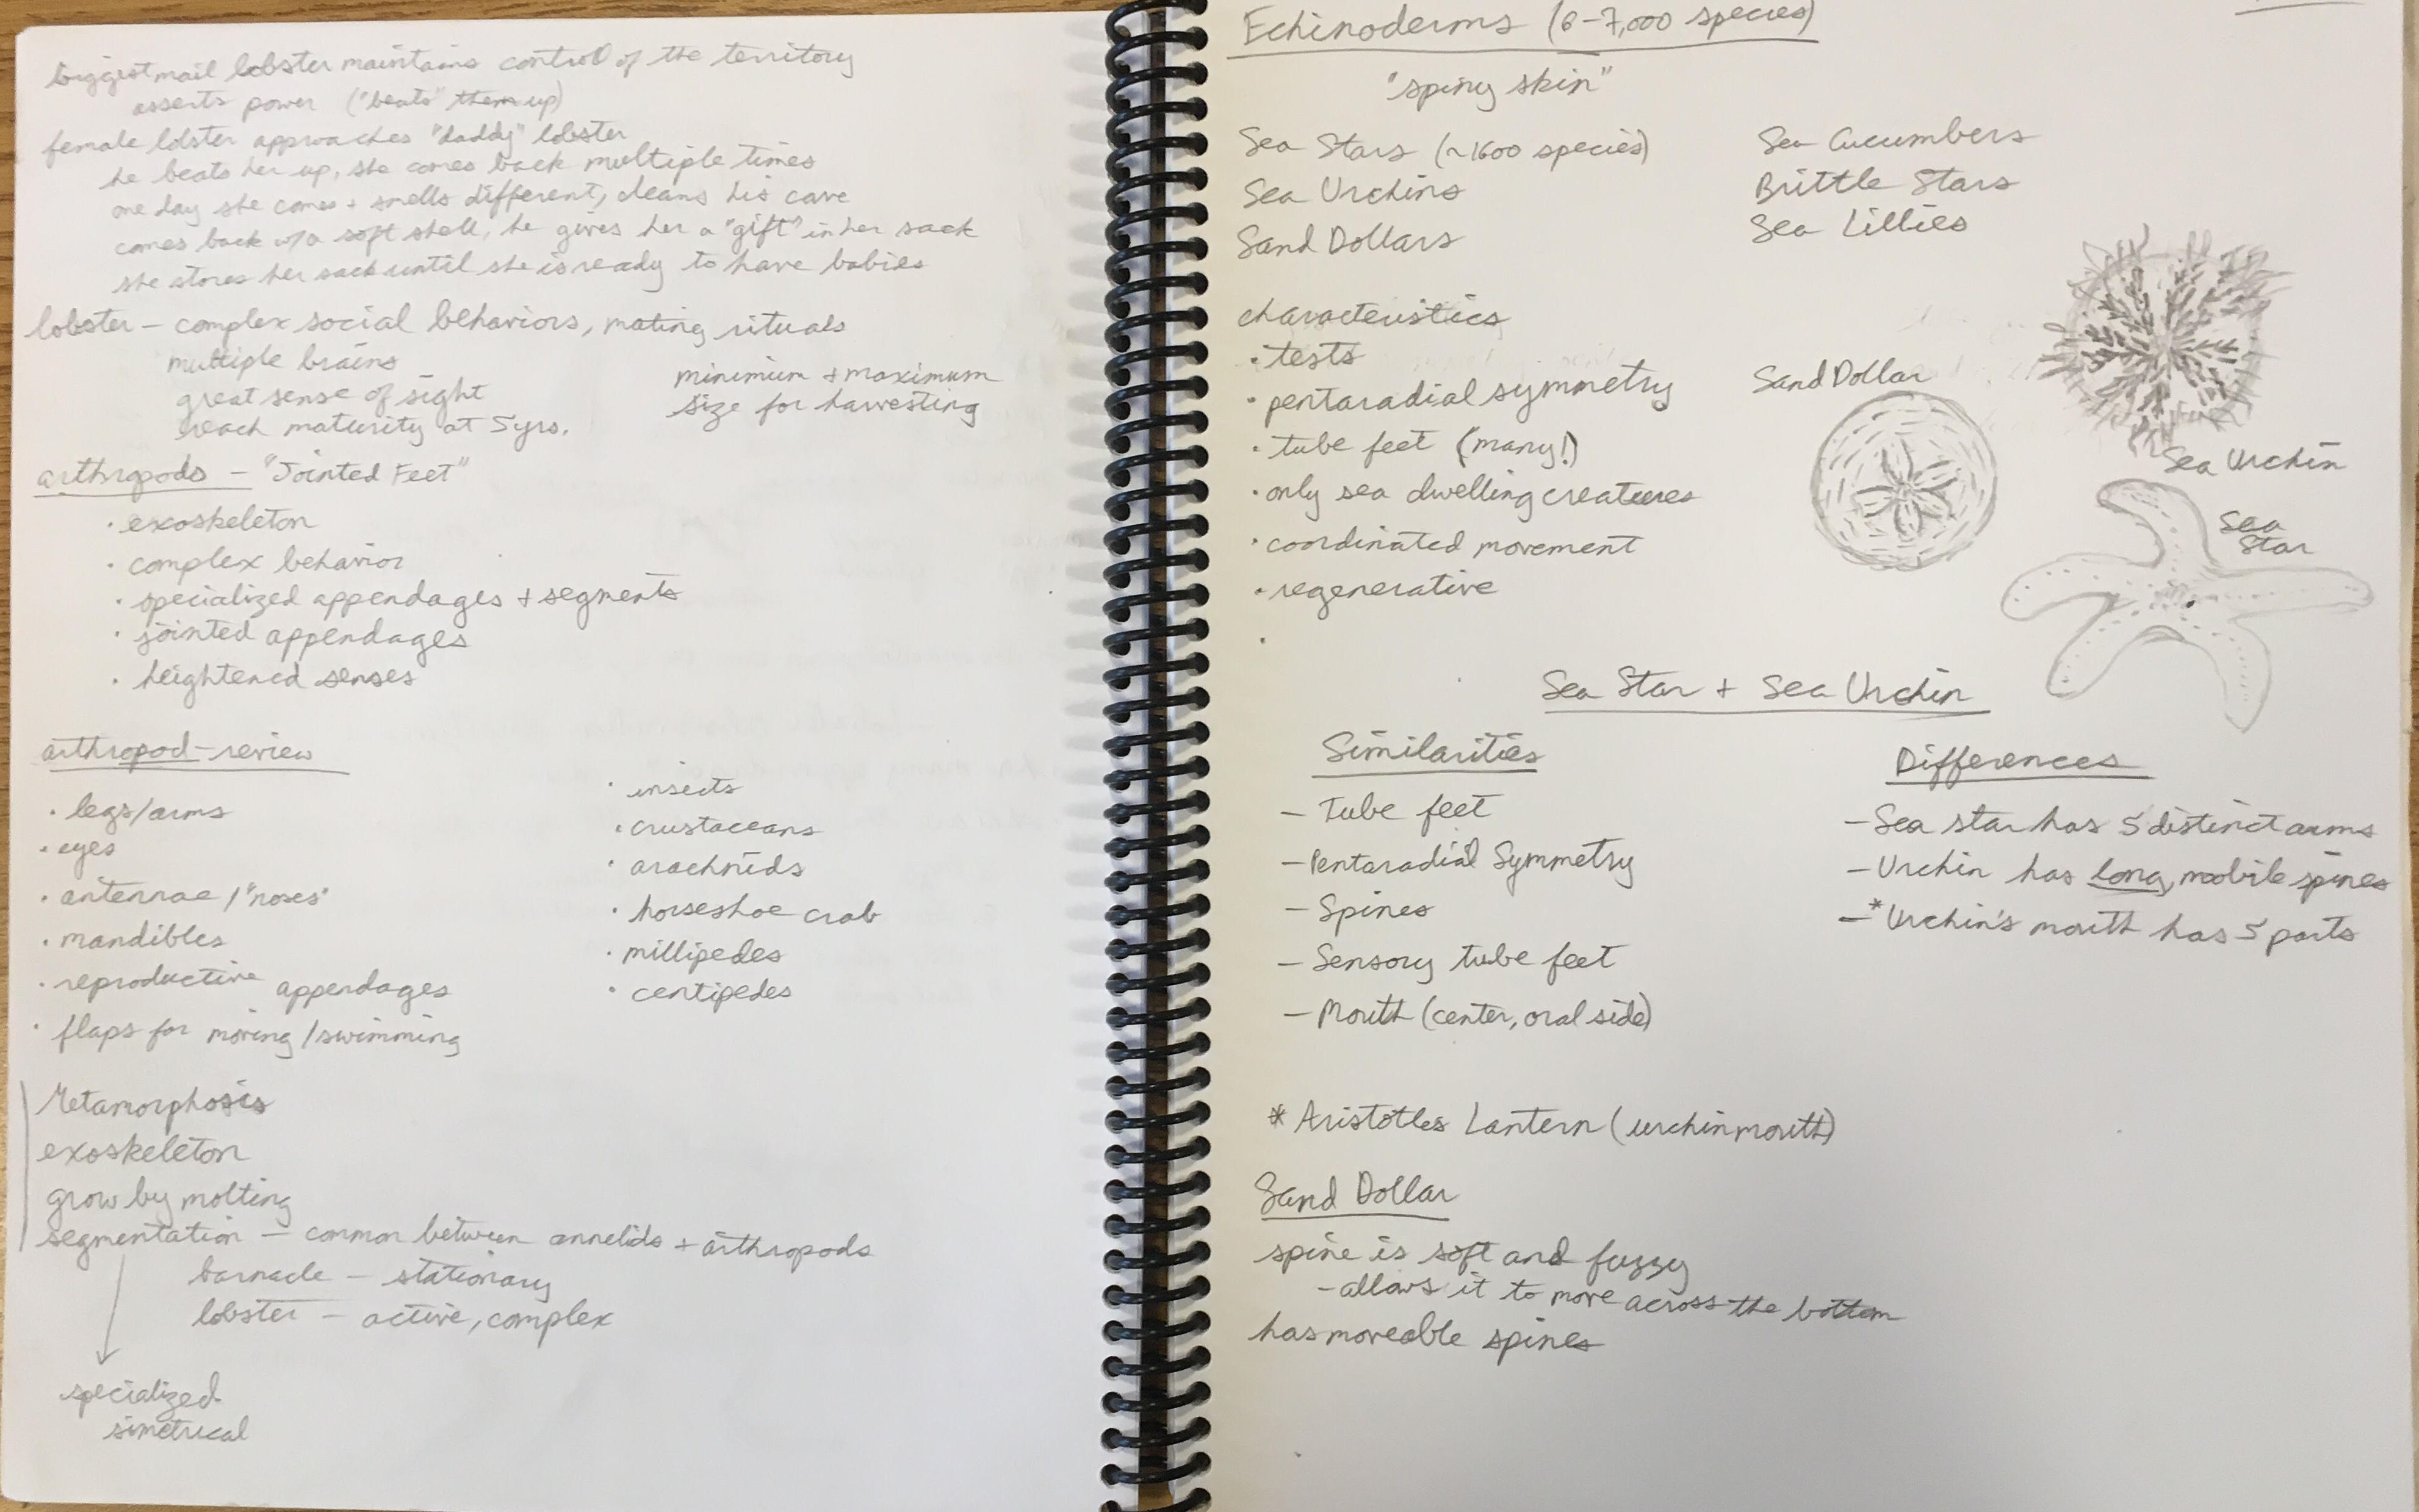 biggest mail lobster maintains control of the territory
asserts power ("beats" them up)
female lobster approaches "daddy" lobster
he beats her up, she comes back multiple times
one day she comes + smells different, cleans his cave
comes back w/a soft shell, he gives her a "gift" in her sack
she stores her sack until she is ready to have babies
lobster - complex social behaviors, mating rituals
multiple brains
great sense of sight
reach maturity at 5yrs.
minimum + maximum
size for harvesting
arthropods - "Jointed Feet"
· exoskeleton
· complex behavior
· specialized appendages + segments
· jointed appendages
· heightened senses
arthropod-review
· legs/arms
· eyes
· antennae / "noses"
· mandibles
· reproductive appendages
· flaps for moving / swimming
· insects
· crustaceans
· arachnids
· horseshoe crab
· millipedes
· centipedes
Metamorphosis
exoskeleton
grow by molting
segmentation - common between annelids + arthropods
barnacle - stationary
lobster - active, complex
specialized
simetrical
Echinoderms (6-7,000 species)
"spiny skin"
Sea Stars (~1600 species)
Sea Urchins
Sand Dollars
Sea Cucumbers
Brittle Stars
Sea Lillies
characteristics
· tests
· pentaradial symmetry
· tube feet (many!)
· only sea dwelling creatures
· coordinated movement
· regenerative
·
Sand Dollar
Sea Urchin
Sea
Star
Sea Star + Sea Urchin
Similarities
- Tube feet
- Pentaradial Symmetry
- Spines
- Sensory tube feet
- Mouth (center, oral side)
Differences
- Sea star has 5 distinct arms
- Urchin has long, mobile spines
- *Urchin's mouth has 5 parts
* Aristotles Lantern (urchin mouth)
Sand Dollar
spine is soft and fuzzy
- allows it to move across the bottom
has moveable spines